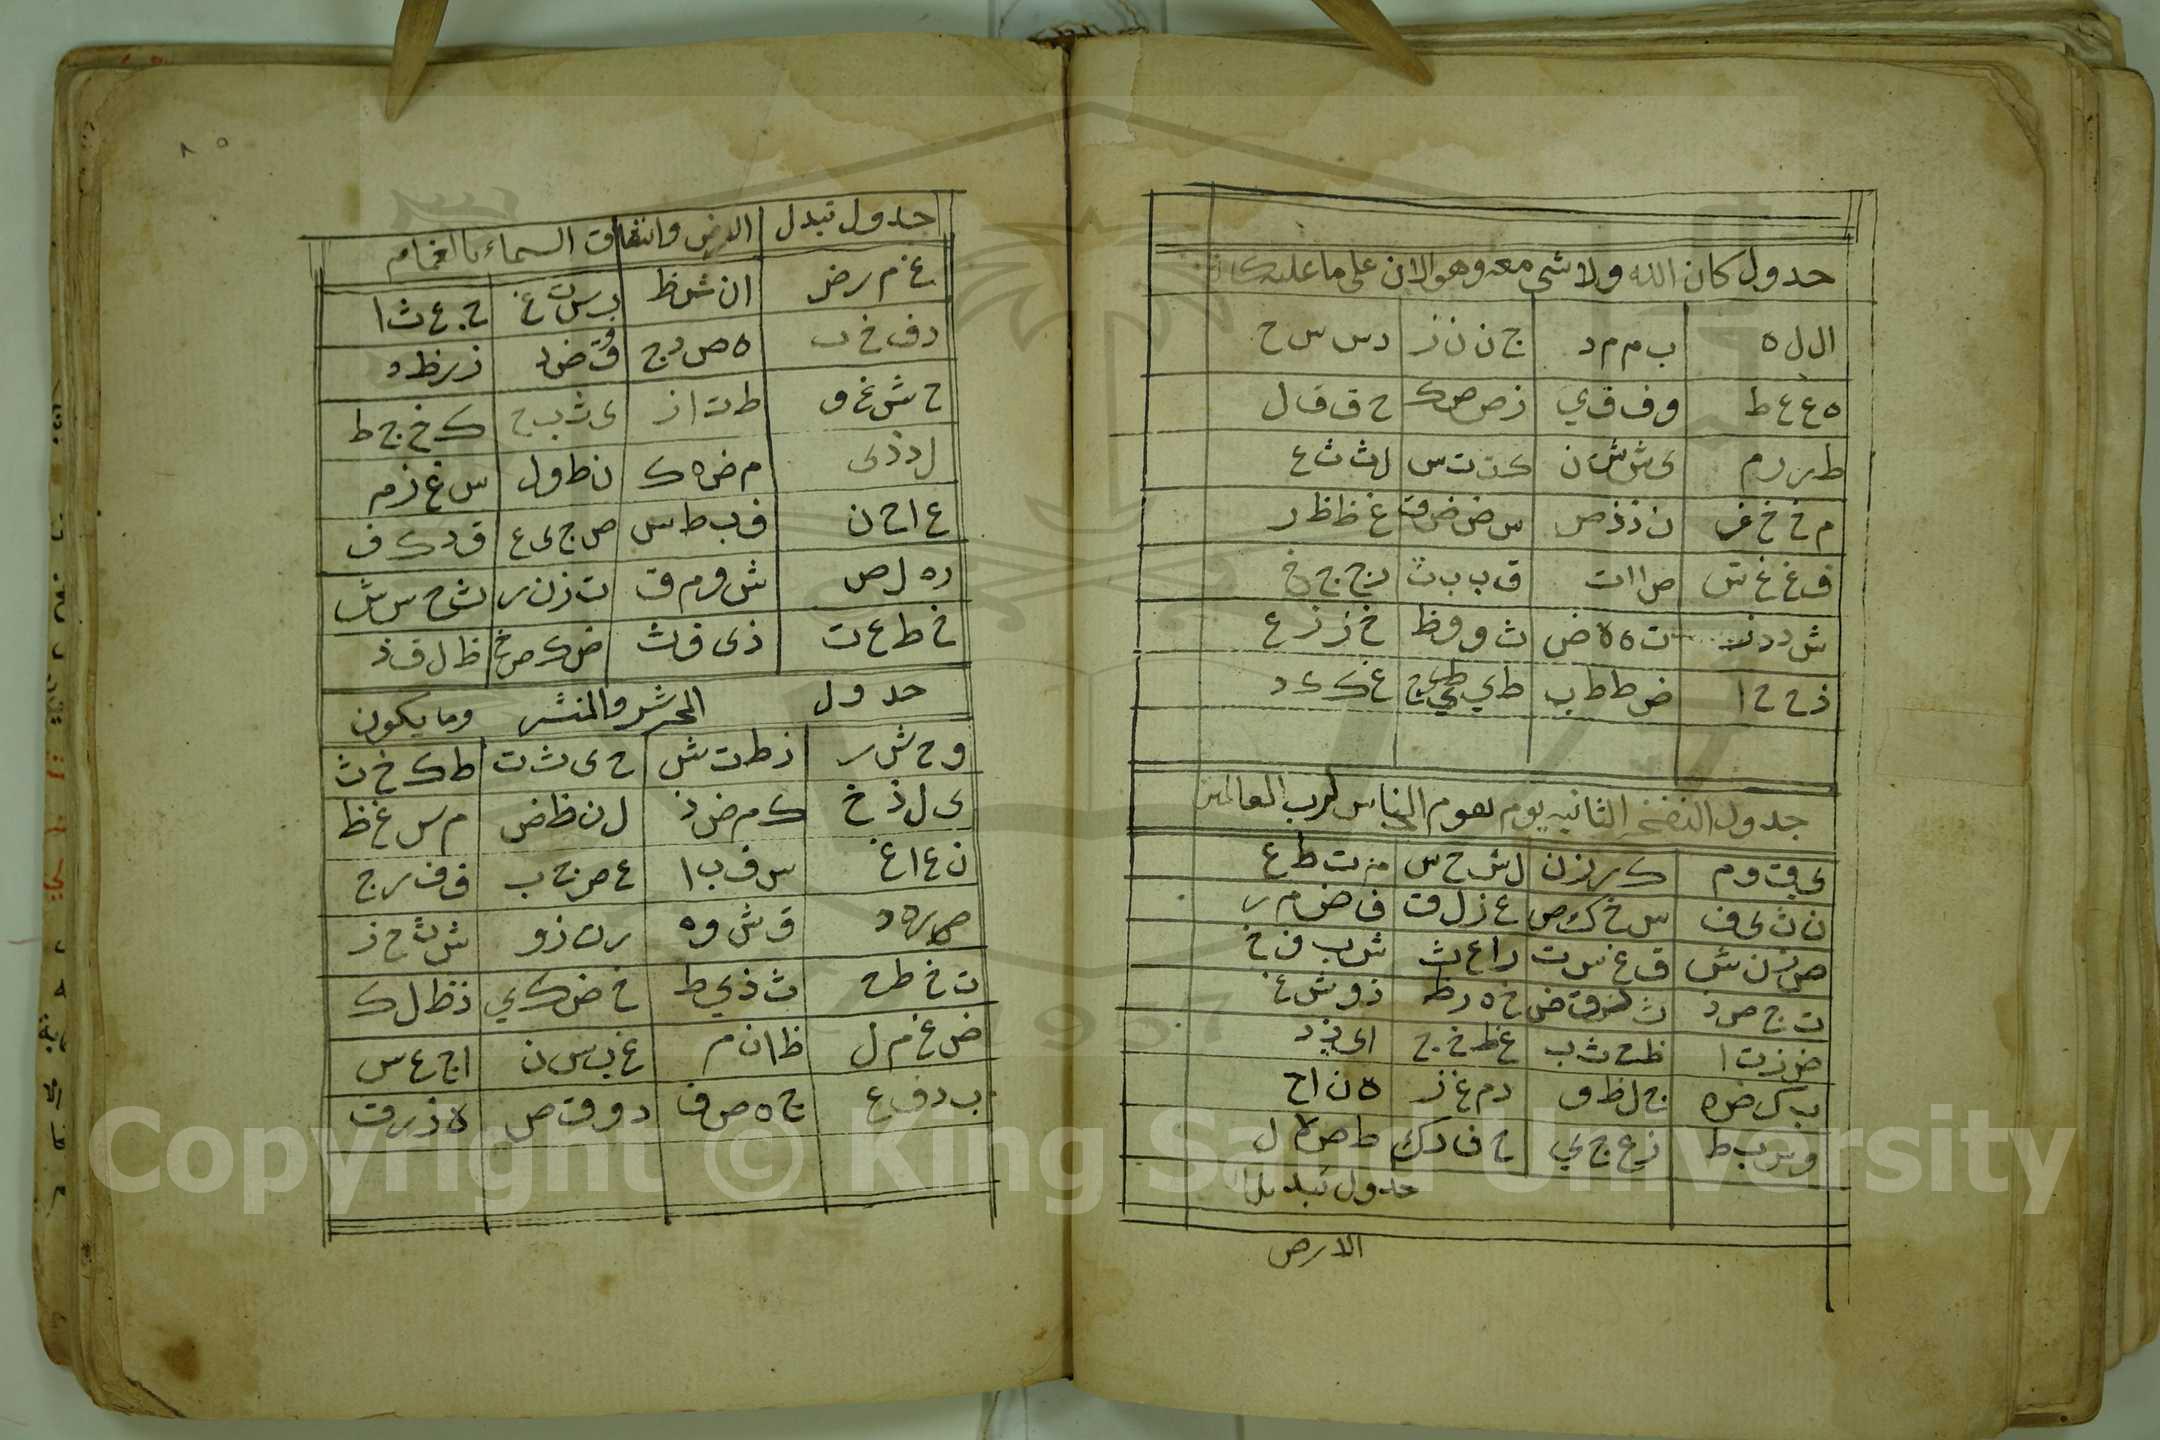 جدول كان الله ولا شي معه وهو الان على ما عليه كان
ا ل ل ه ب م م و ج ن ن ز د س س ح
ه ع ع ط و ف ف ي ز ص ص ك ح ق ق ل
ط ر ر م ى ش ش ن ك ت ت س ل ث ث ع
م خ خ ف ن ذ ذ ص س ض ض ق ع ظ ظ ر
ف غ غ ش ص ا ا ت ق ب ب ث ر ج ج خ
ش د د ت ه ه ض ث و و ظ خ ز ز غ
ذ ح ح ا ض ط ط ب ظ ي ي ج غ ك ك د
جدول النفخة الثانيه يوم يقوم الناس لرب العالمين
ى ق و م ك ر ز ن ل ش ح س م ت ط ع
ن ث ى ف س خ ك ص ع ذ ل ق ف ض م ر
ص ظ ن ش ق غ س ت ر ا ع ث ش ب ف خ
ت ج ص ذ ث د ق ض خ ه ر ظ ذ و ش غ
ض ز ت ا ظ ح ث ب غ ط خ ج ا ى ذ د
ب ك ض ه ج ل ظ و د م غ ز ه ن ا ح
و س ب ط ز ع ج ي ح ف د ك ط ص ه ل
جدول تبديل
الارض
٨٥
جدول تبدل الارض وانشقاق السماء بالغمام
غ م ر ض ا ن ش ظ ب س ت غ ج ع ث ا
د ف خ ب ه ص ذ ج و ق ض د ز ر ظ ه
ح ش غ و ط ت ا ز ى ث ب ح ك خ ج ط
ل ذ د ى م ض ه ك ن ظ و ل س غ ز م
ع ا ح ن ف ب ط س ص ج ى ع ق د ك ف
ر ه ل ص ش و م ق ت ز ن ر ث ح س ش
خ ط ع ت ذ ى ف ث ض ك ص خ ظ ل ق ذ
جدول المحشر والمنشر وما يكون
و ح ش ر ز ط ت ش ح ى ث ت ط ك خ ث
ى ل ذ خ ك م ض ذ ل ن ظ ض م س غ ظ
ن ع ا غ س ف ب ا ع ص ج ب ف ق ج
ص ر ه د ق ش و ه ر ت ز و ش ث ح ز
ت خ ط ح ث ذ ي ط خ ض ك ي ذ ظ ل ك
ض غ م ل ظ ا ن م غ ب س ن ا ج ع س
ب د ف ع ج ه ص ف د و ق ص ه ز ر ق
Copyright © King Saud University
1957